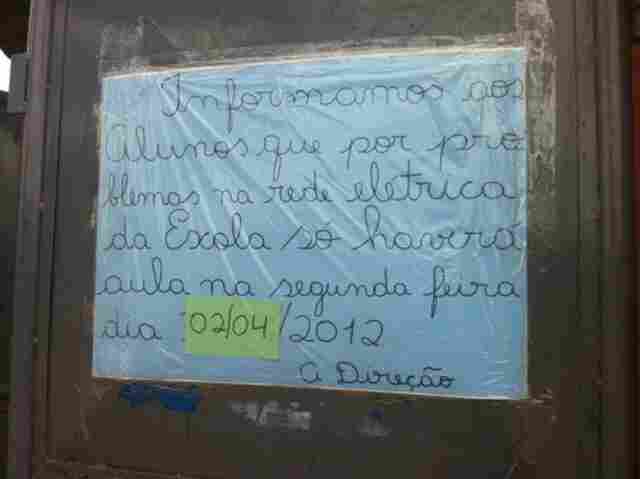 Informamos aos
Alunos que por pro
blemas na rede eletrica
da Escola só haverá
aula na segunda feira
dia 02/04/2012
A Direção